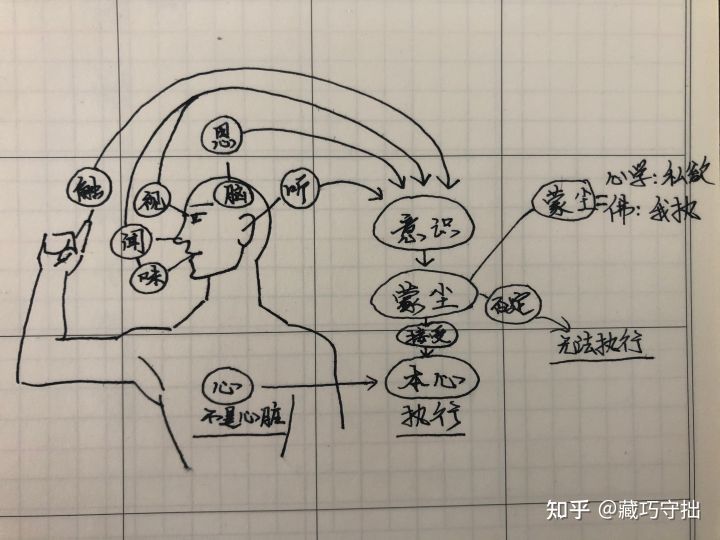 思
触
视
脑
听
闻
味
意识
蒙尘
蒙尘=
心学:私欲
佛:我执
否定
无法执行
接受
心
不是心脏
本心
执行
知乎 @藏巧守拙